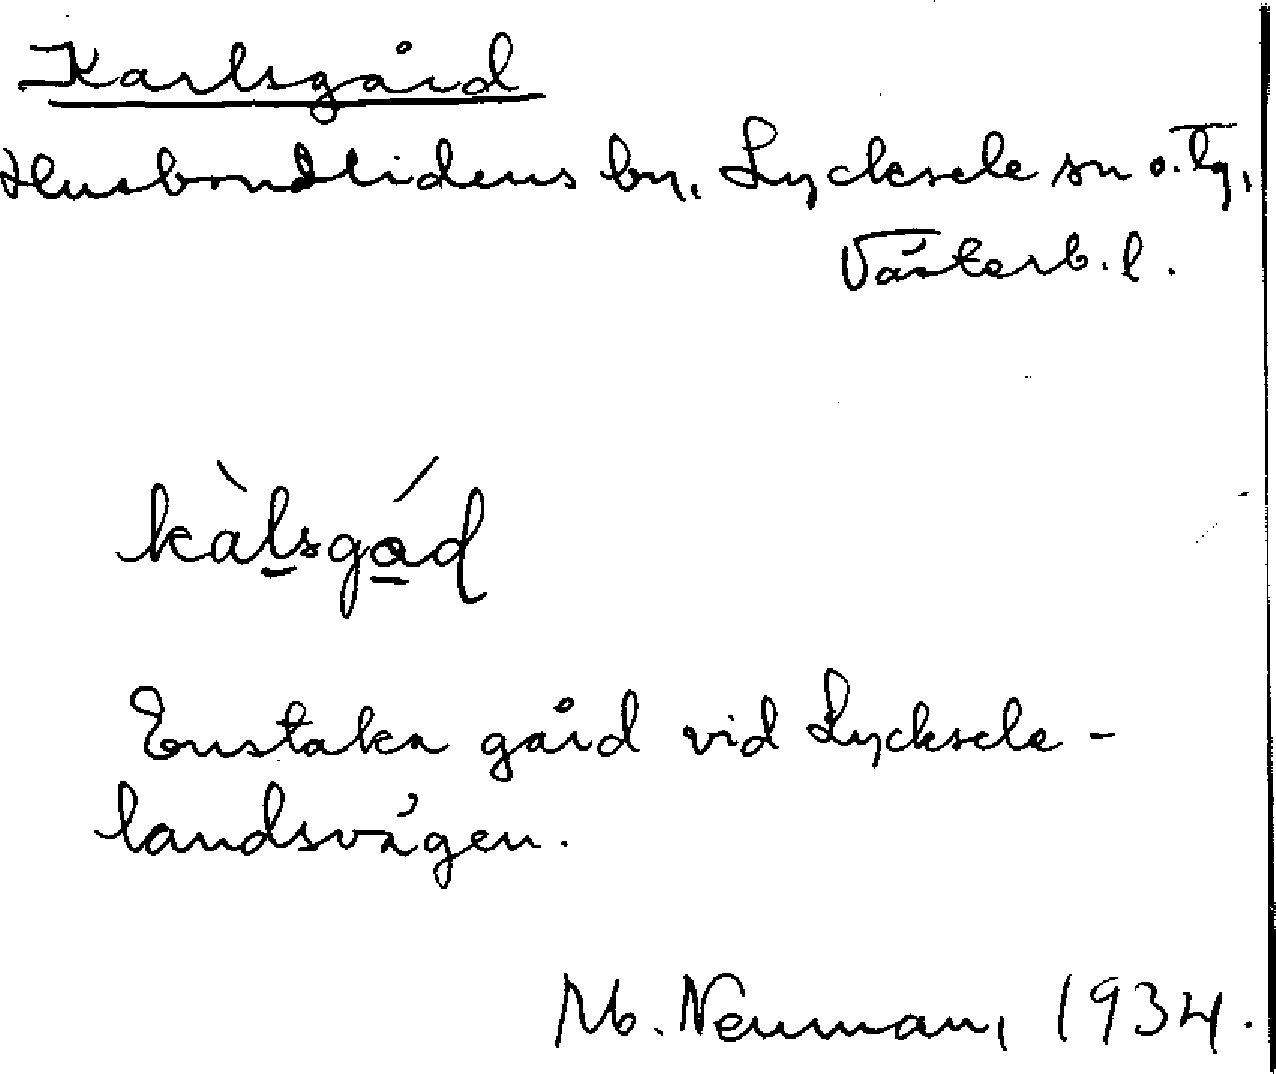 Karlsgård
Husbondlidens by, Lycksele sn o. tg,
Västerb. l.
kàlsgád
Enstaka gård vid Lycksele-
landsvägen.
M. Neuman, 1934.